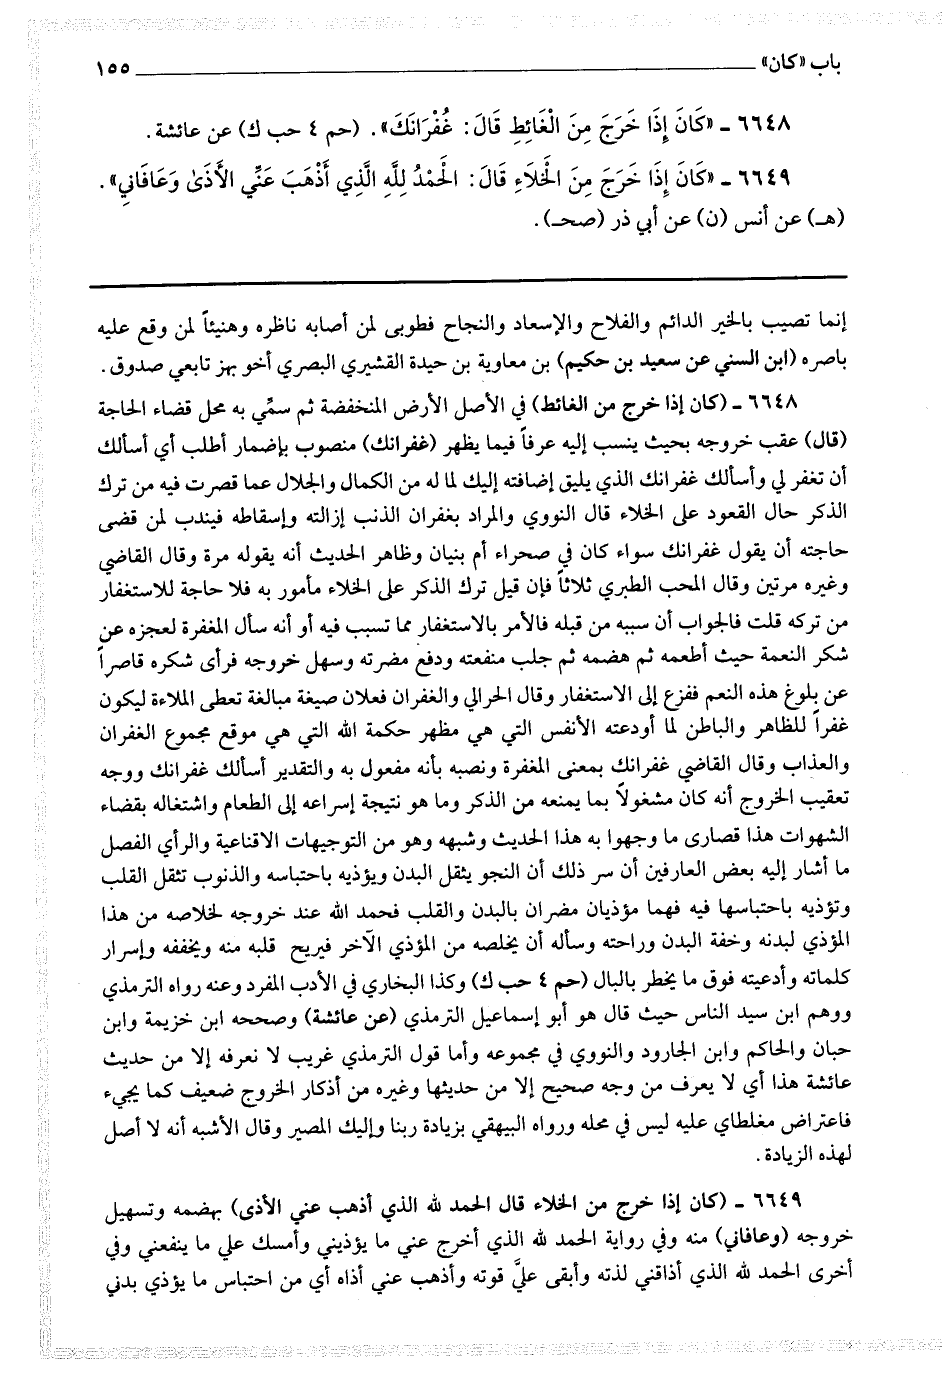 باب «كان» ١٥٥
٦٦٤٨ ـ «كَانَ إِذَا خَرَجَ مِنَ الْغَائِطِ قَالَ: غُفْرَانَكَ». (حم ٤ حب ك) عن عائشة.
٦٦٤٩ ـ «كَانَ إِذَا خَرَجَ مِنَ الْخَلَاءِ قَالَ: الْحَمْدُ لِلَّهِ الَّذِي أَذْهَبَ عَنِّي الأَذَىٰ وَعَافَانِي».
(هـ) عن أنس (ن) عن أبي ذر (صحـ).
إنما تصيب بالخير الدائم والفلاح والإسعاد والنجاح فطوبى لمن أصابه ناظره وهنيئاً لمن وقع عليه
باصره (ابن السني عن سعيد بن حكيم) بن معاوية بن حيدة القشيري البصري أخو بهز تابعي صدوق.
٦٦٤٨ ـ (كان إذا خرج من الغائط) في الأصل الأرض المنخفضة ثم سمِّي به محل قضاء الحاجة
(قال) عقب خروجه بحيث ينسب إليه عرفاً فيما يظهر (غفرانك) منصوب بإضمار أطلب أي أسألك
أن تغفر لي وأسألك غفرانك الذي يليق إضافته إليك لما له من الكمال والجلال عما قصرت فيه من ترك
الذكر حال القعود على الخلاء قال النووي والمراد بغفران الذنب إزالته وإسقاطه فيندب لمن قضى
حاجته أن يقول غفرانك سواء كان في صحراء أم بنيان وظاهر الحديث أنه يقوله مرة وقال القاضي
وغيره مرتين وقال المحب الطبري ثلاثاً فإن قيل ترك الذكر على الخلاء مأمور به فلا حاجة للاستغفار
من تركه قلت فالجواب أن سببه من قبله فالأمر بالاستغفار مما تسبب فيه أو أنه سأل المغفرة لعجزه عن
شكر النعمة حيث أطعمه ثم هضمه ثم جلب منفعته ودفع مضرته وسهل خروجه فرأى شكره قاصراً
عن بلوغ هذه النعم ففزع إلى الاستغفار وقال الحرالي والغفران فعلان صيغة مبالغة تعطى الملاءة ليكون
غفراً للظاهر والباطن لما أودعته الأنفس التي هي مظهر حكمة الله التي هي موقع مجموع الغفران
والعذاب وقال القاضي غفرانك بمعنى المغفرة ونصبه بأنه مفعول به والتقدير أسألك غفرانك ووجه
تعقيب الخروج أنه كان مشغولاً بما يمنعه من الذكر وما هو نتيجة إسراعه إلى الطعام واشتغاله بقضاء
الشهوات هذا قصارى ما وجهوا به هذا الحديث وشبهه وهو من التوجيهات الاقناعية والرأي الفصل
ما أشار إليه بعض العارفين أن سر ذلك أن النجو يثقل البدن ويؤذيه باحتباسه والذنوب تثقل القلب
وتؤذيه باحتباسها فيه فهما مؤذيان مضران بالبدن والقلب فحمد الله عند خروجه لخلاصه من هذا
المؤذي لبدنه وخفة البدن وراحته وسأله أن يخلصه من المؤذي الآخر فيريح قلبه منه ويخففه وإسرار
كلماته وأدعيته فوق ما يخطر بالبال (حم ٤ حب ك) وكذا البخاري في الأدب المفرد وعنه رواه الترمذي
ووهم ابن سيد الناس حيث قال هو أبو إسماعيل الترمذي (عن عائشة) وصححه ابن خزيمة وابن
حبان والحاكم وابن الجارود والنووي في مجموعه وأما قول الترمذي غريب لا نعرفه إلا من حديث
عائشة هذا أي لا يعرف من وجه صحيح إلا من حديثها وغيره من أذكار الخروج ضعيف كما يجيء
فاعتراض مغلطاي عليه ليس في محله ورواه البيهقي بزيادة ربنا وإليك المصير وقال الأشبه أنه لا أصل
لهذه الزيادة.
٦٦٤٩ ـ (كان إذا خرج من الخلاء قال الحمد لله الذي أذهب عني الأذى) بهضمه وتسهيل
خروجه (وعافاني) منه وفي رواية الحمد لله الذي أخرج عني ما يؤذيني وأمسك علي ما ينفعني وفي
أخرى الحمد لله الذي أذاقني لذته وأبقى عليَّ قوته وأذهب عني أذاه أي من احتباس ما يؤذي بدني